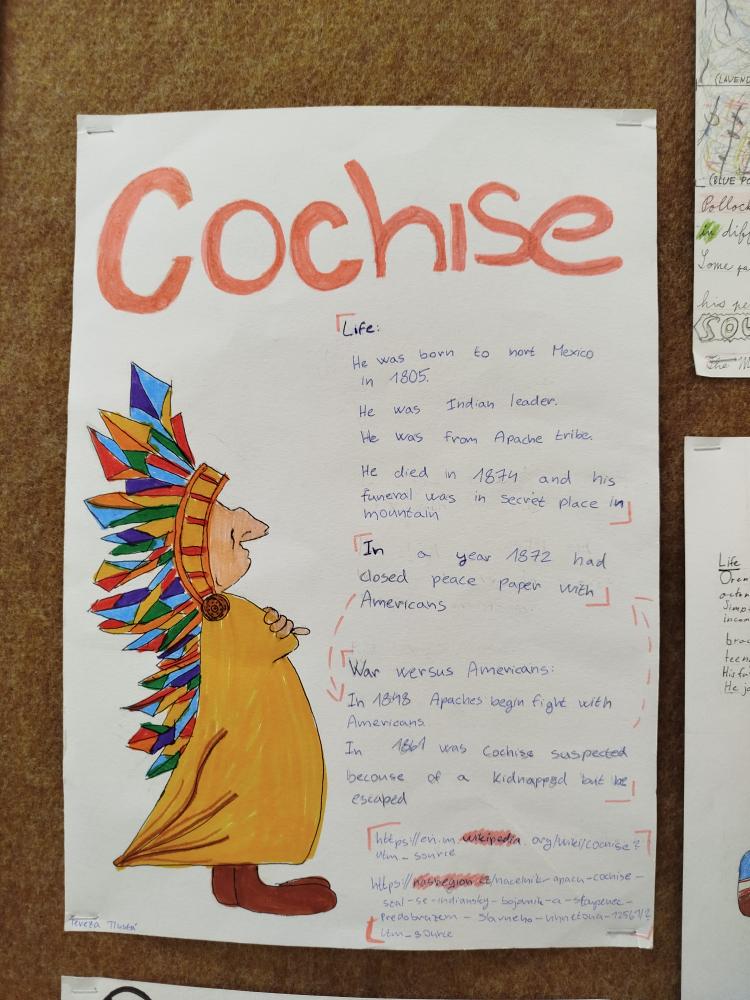 Cochise
Life:
He was born to nort Mexico
in 1805.
He was Indian leader.
He was from Apache tribe.
He died in 1874 and his
funeral was in secret place in
mountain
In a year 1872 had
closed peace paper with
Americans
War versus Americans:
In 1848 Apaches begin fight with
Americans
In 1861 was Cochise suspected
becouse of a kidnapped but he
escaped
https://en.m.wikipedia.org/wiki/cochise?
utm_source
https://nasregion.cz/nacelnik-apacu-cochise-
stal-se-indiansky-bojovnik-a-stoupenec-
Predobrazem-slavneho-vinnetoua-
utm_source
Tereza
(LAVEND
(BLUE PO
Pollock
in diff
Some
his pe
SOU
The M
Life